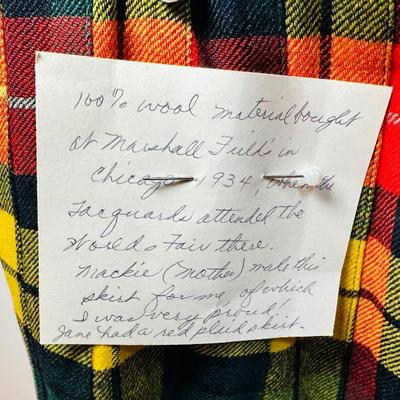 100% wool material bought
at Marshall Field's in
Chicago 1934, when the
Jacquards attended the
Worlds Fair there.
Mackie (mother) made this
skirt for me, of which
I was very proud!
Jane had a red plaid skirt.